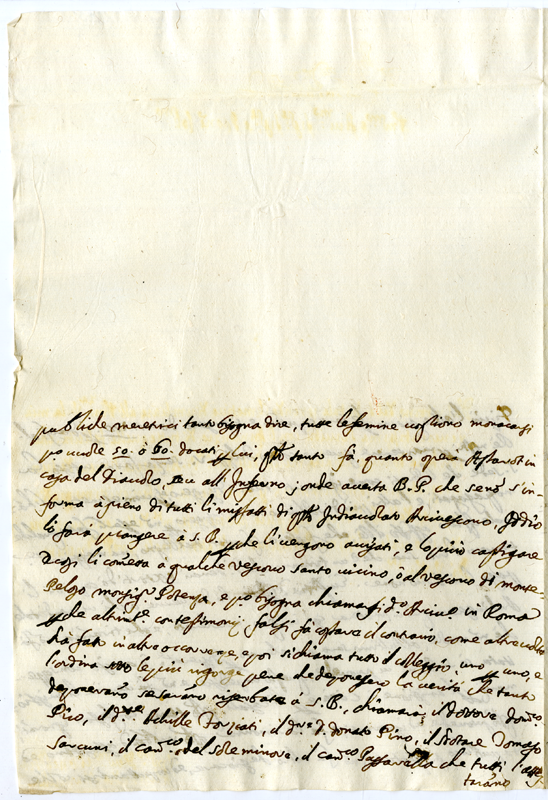 publiche meretrici tanto bisogna dire, tutte le femine vogliono monacarsi
po vuole 50. ò 60. docati lui, tanto fà, quanto opera Astarot in
casa del Diavolo, seu all' Inferno; onde averta B. P. che se nò s'in-
forma à pieno di tutti li misfatti di Indiavolato Arcivescovo, Iddio
li farà piangere à S. B. che li vengono avisati, e lo può castigare
e cosi li cometta à qualche vescovo santo vicino, ò al vescovo di monte-
Peloso monsig.r Potenza, e bisogna chiamarsi d.o Arciv.o in Roma
che altrim.te con testimonij falsi fà costare il contrario, come altre volte
hà fatto in altre occorenze, e poi si chiama tutto il colleggio, uno uno, e
l'ordina le più rigorose pene che deponessero la verità che tanto
deponeranno se saranno à S. B., chiamarà; il Dottore dom.co
Pino, il d.re Achille, il d.re d. donato Pino, il Notare Tomaso
Sarcuni, il can.co del sole minore, il can.co Passarella che tutti l'atte-
taranno